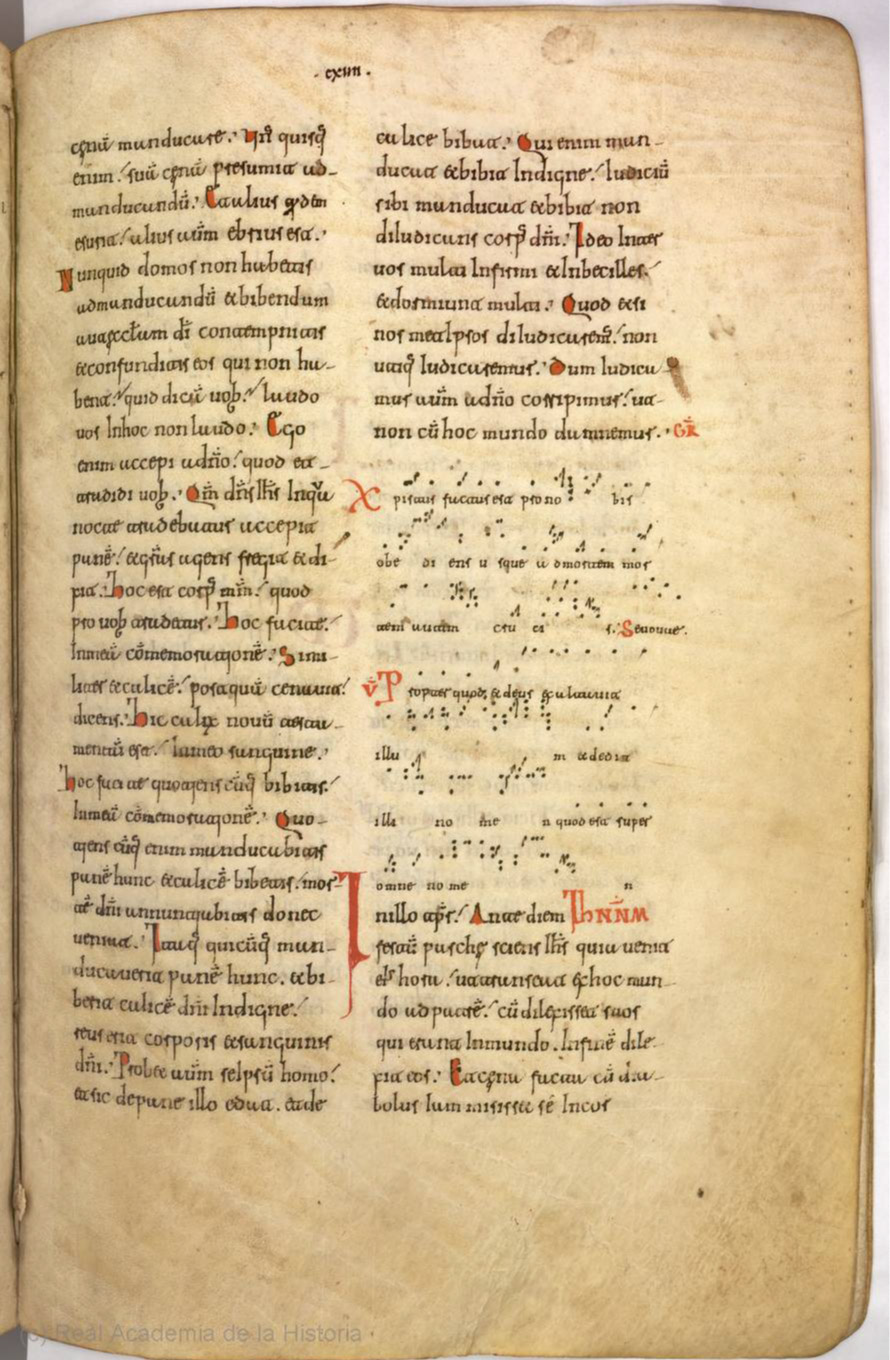 · cxiiii ·
cęnā manducare. Unꝰ quisq̄
enim suā cęnā presumit ad-
manducandū. Et alius qͥdem
esurit alius autem ebrius est.
Nunquid domos non habetis
admanducandū et bibendum
aut ęcclam dī contempnitis
et confunditis eos qui non ha-
bent quid dicā uob. laudo
uos Inhoc non laudo. Ego
enim accepi adn̄o quod et-
tradidi uob. Qm̄ dn̄s Ih̄s Inqua
nocte tradebatur accepit
panē et grās agens fregit et di-
xit. hoc est corp̄ mm̄ quod
pro uob tradetur. hoc facite
Inmeā cōmemorationē. Simi-
liter et calicē postquā cenauit
dicens. hic calix nouū testa-
mentū est Inmeo sanguine.
hoc facite quotienscūq̄ bibitis
Inmeā cōmemorationē. Quo-
tiens cūq̄ enim manducabitis
panē hunc et calicē bibetis. mor
tē dn̄i annuntiabitis donec
ueniat. Itaq̄ quicūq̄ man-
ducauerit panē hunc. et bi-
berit calicē dn̄i Indigne
reus erit corporis et sanguinis
dn̄i. Probet autem seipsū homo
et sic depane illo edat. et de
calice bibat. Qui enim man-
ducat et bibit Indigne Iudiciū
sibi manducat et bibit non
diiudicans corp̄ dn̄i. Ideo Inter
uos multi Infirmi et Inbecilles
et dormiunt multi. Quod etsi
nos metipsos diiudicarem. non
utiq̄ Iudicaremur. Dum Iudica
mur autem adn̄o corripimur ut
non cū hoc mundo damnemur. GR̄
Xpistus factus est pro no bis
obe di ens u sque a dmortem mor
tem autem cru ci s. Seuouae.
V̄ Propter quod et deus exaltauit
illu m et dedit
illi no me n quod est super
omne no me n
Inillo tp̄r. Ante diem IhNN̄M
festū pasche sciens Ih̄s quia uenit
eiꝰ hora ut transeat exhoc mun-
do ad patrē cū dilexisset suos
qui erant Inmundo. Infinē dile-
xit eos. Et cęna facta cū dia-
bolus Iam misisset sē Incor